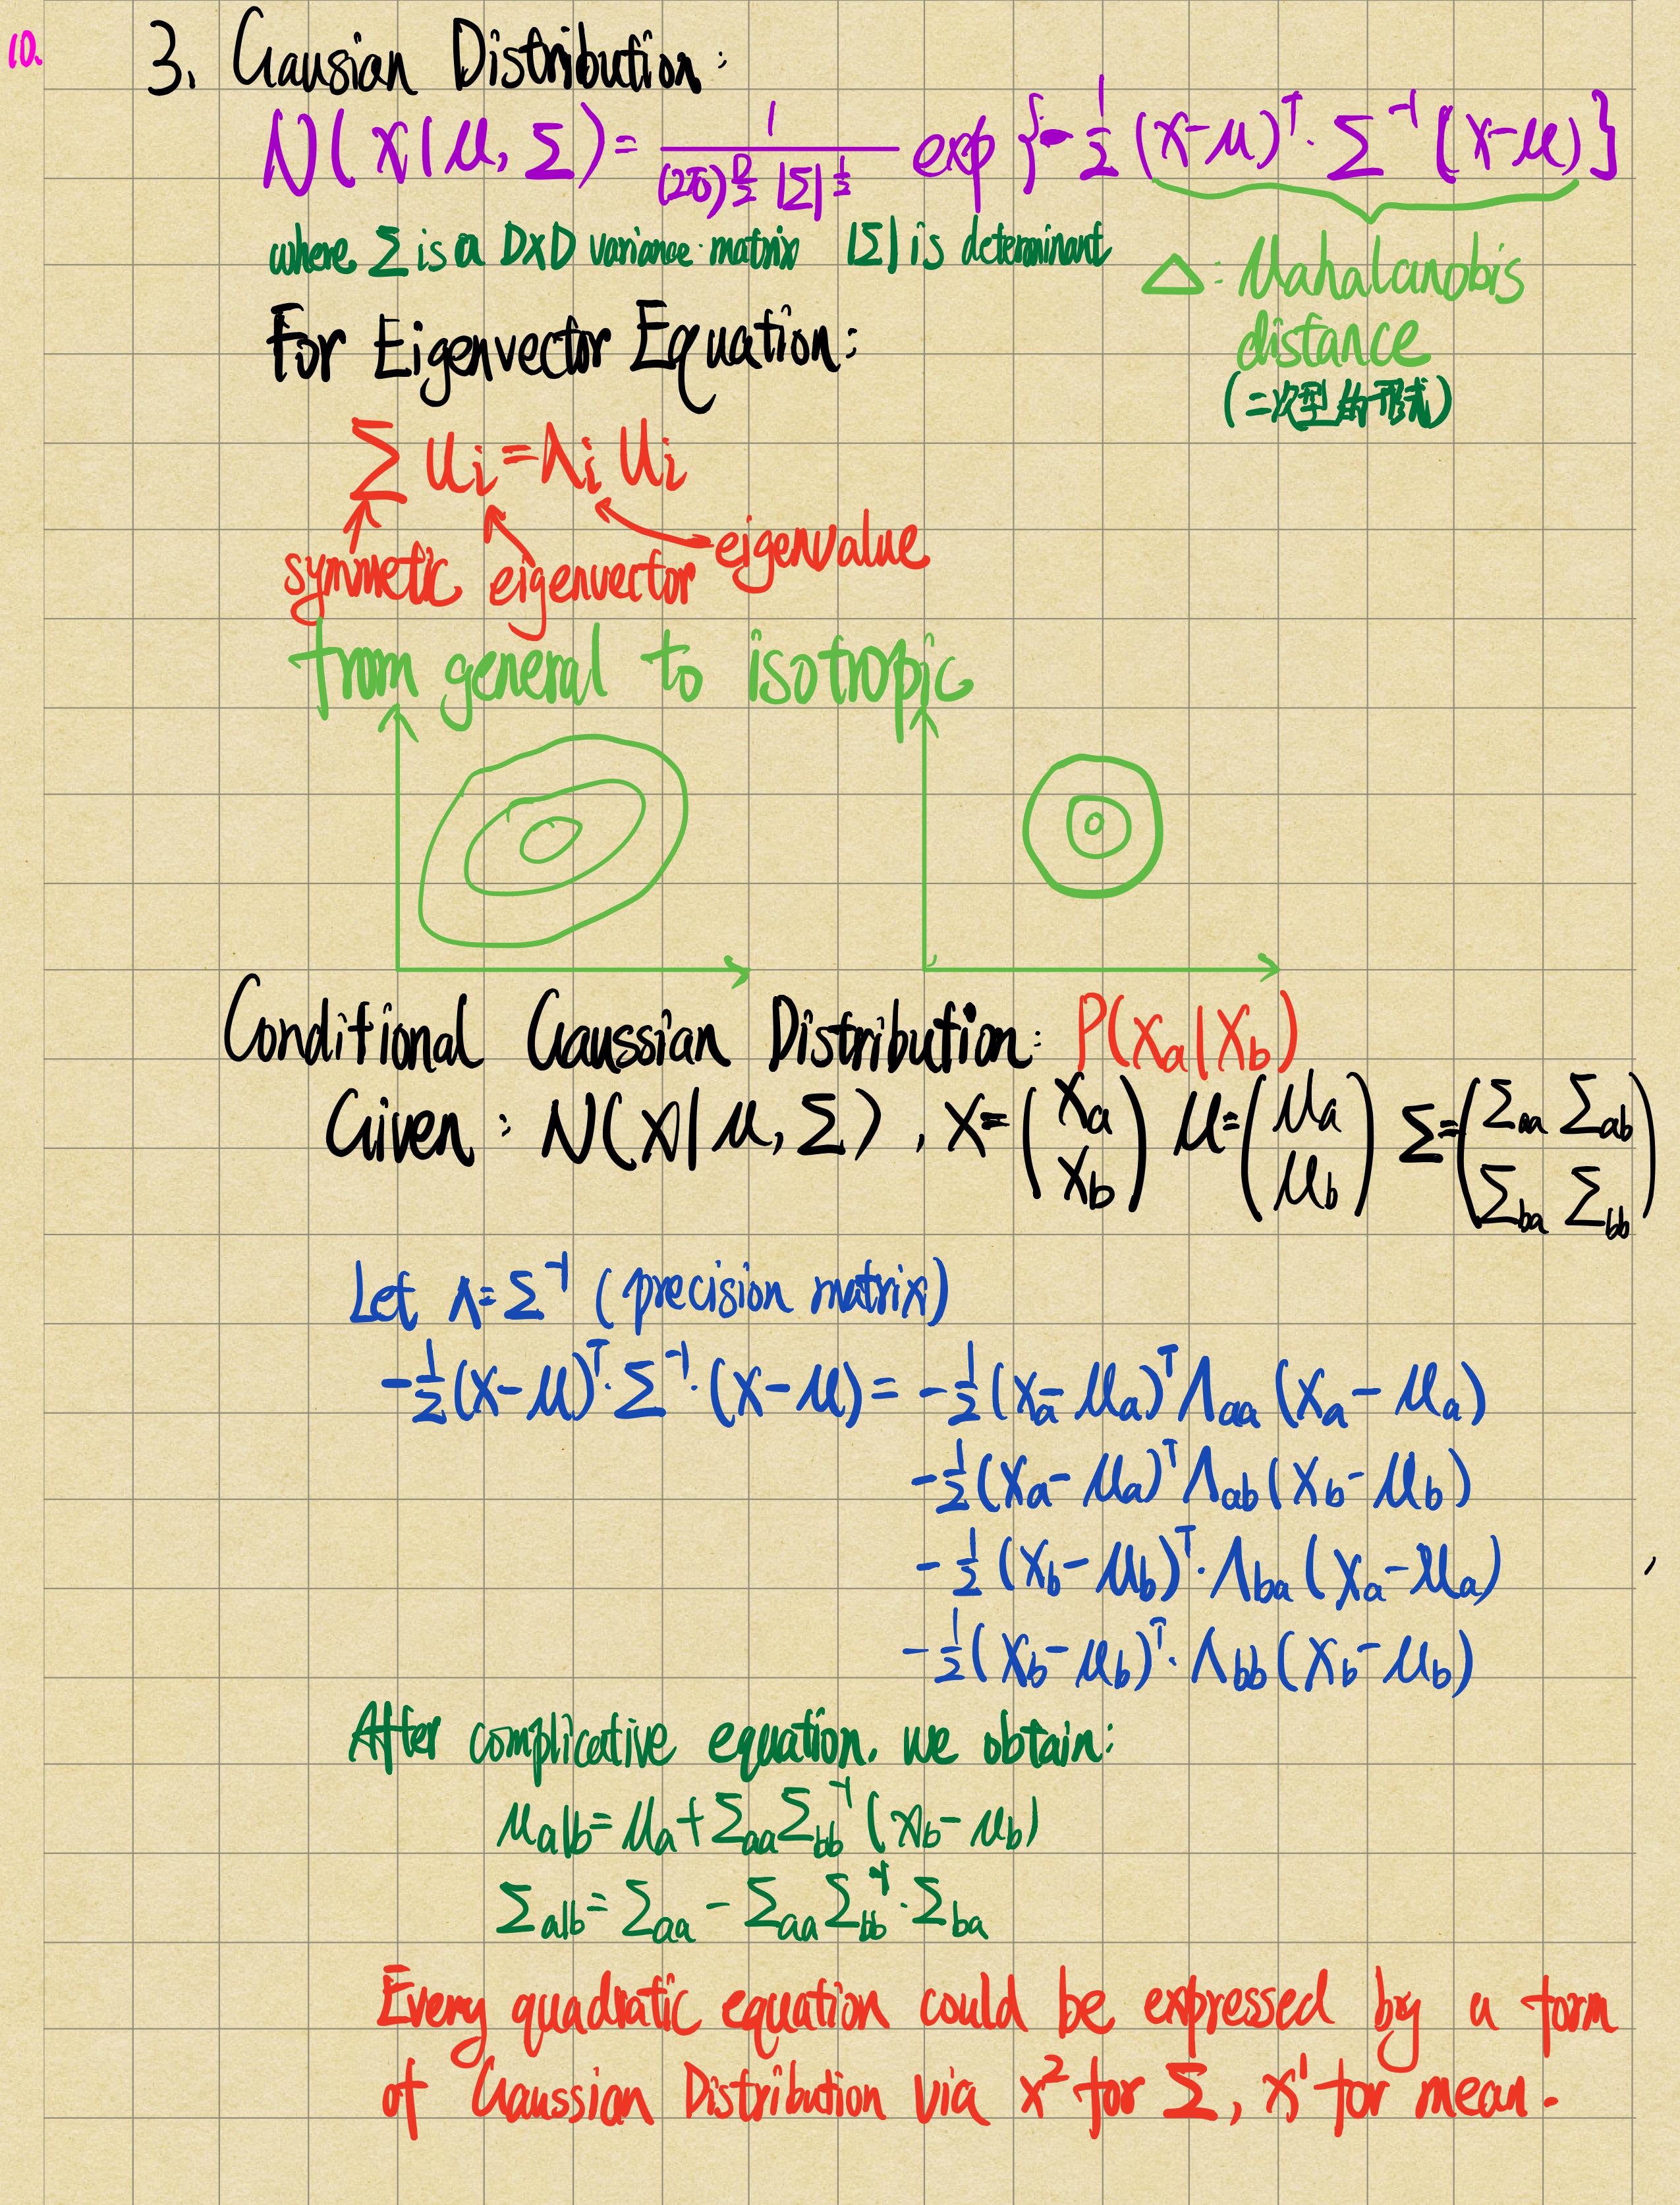 10.
3. Gausian Distribution:
N(x|μ, Σ) = 1/((2π)^{D/2} |Σ|^{1/2}) exp{-1/2 (x-μ)^T · Σ^{-1} (x-μ)}
where Σ is a D×D variance matrix |Σ| is determinant
△: Mahalanobis
distance
(二次型的形式)
For Eigenvector Equation:
Σ u_i = λ_i u_i
symmetic eigenvector eigenvalue
from general to isotropic
Conditional Gaussian Distribution: P(x_a|x_b)
Given: N(x|μ, Σ), x = (x_a x_b) μ = (μ_a μ_b) Σ = (Σ_aa Σ_ab Σ_ba Σ_bb)
Let Λ = Σ^{-1} (precision matrix)
-1/2 (x-μ)^T · Σ^{-1} · (x-μ) = -1/2 (x_a-μ_a)^T Λ_aa (x_a-μ_a)
-1/2 (x_a-μ_a)^T Λ_ab (x_b-μ_b)
-1/2 (x_b-μ_b)^T · Λ_ba (x_a-μ_a)
-1/2 (x_b-μ_b)^T · Λ_bb (x_b-μ_b)
After complicative equation, we obtain:
μ_a|b = μ_a + Σ_aa Σ_bb^{-1} (x_b-μ_b)
Σ_a|b = Σ_aa - Σ_aa Σ_bb^{-1} · Σ_ba
Every quadratic equation could be expressed by a form
of Gaussian Distribution via x² for Σ, x¹ for mean.